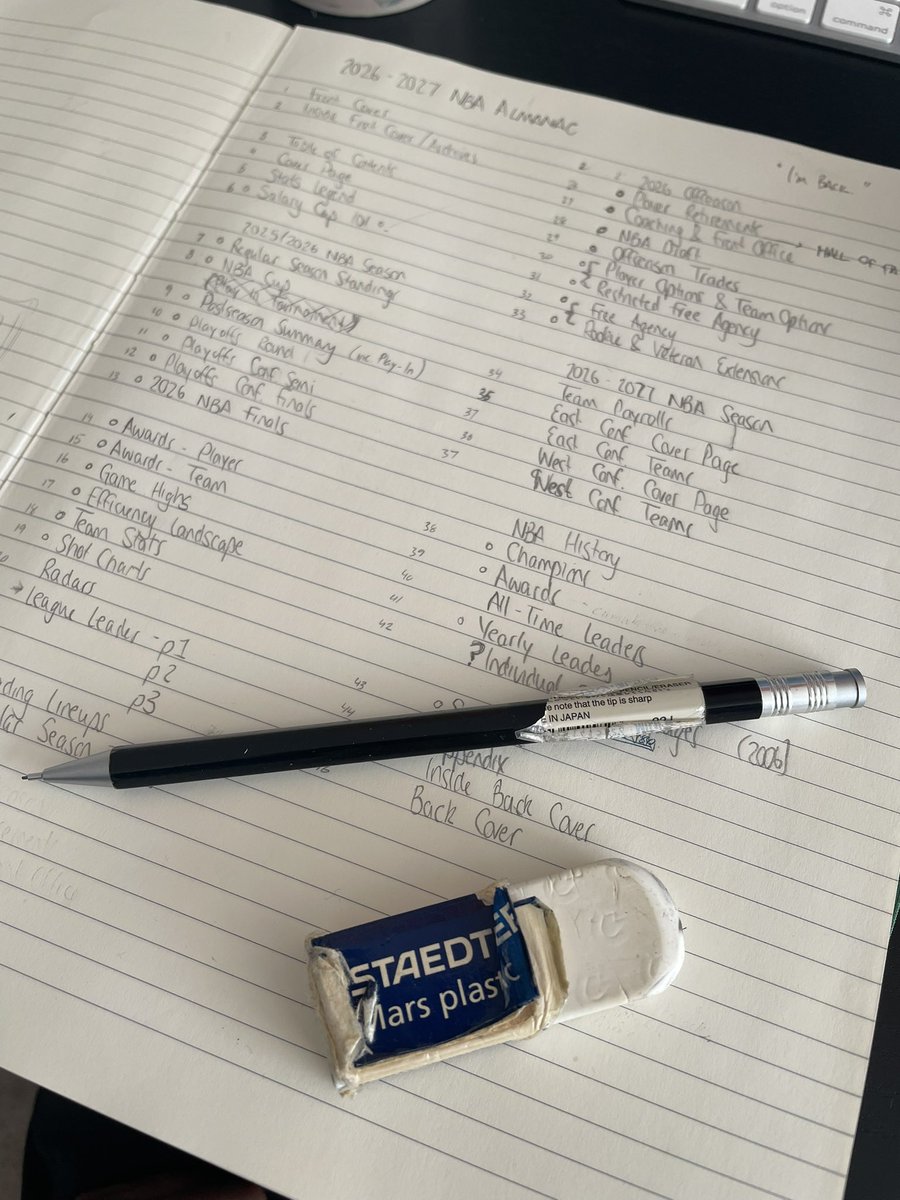 option
command
⌘
2026 - 2027 NBA ALMANAC
1 Front Cover
2 Inside Front Cover /
3 Table of Contents
4 Cover Page
5 Stats Legend
6 Salary Cap 101
2025/2026 NBA Season
7 Regular Season Standings
8 NBA Cup
Play in Tournament
9 Postseason Summary (inc Play-In)
10 Playoffs Round 1
11 Playoffs Conf Semi
12 Playoffs Conf Finals
13 2026 NBA Finals
14 Awards - Player
15 Awards - Team
16 Game Highs
17 Efficiency Landscape
18 Team Stats
19 Shot Charts
Radars
→ League Leader - p1
p2
p3
ding Lineups
lar Season
"I'm BACK."
2026 Offseason
Player Retirements
Coaching & Front Office → HALL OF FA
NBA Draft
Offseason Trades
Player Options & Team Options
Restricted Free Agency
Free Agency
Rookie & Veteran Extensions
27
28
29
30
31
32
33
2026 - 2027 NBA Season
34 Team Payrolls
35 East Conf. Cover Page
37 East Conf. Teams
38 West Conf. Cover Page
37 West Conf Teams
NBA History
38 Champions
39 Awards
40 All-Time Leaders
41 Yearly Leaders
42 ? Individual
43
44
ages (2006)
ppendix
Inside Back Cover
Back Cover
PENCIL/ERASER
e note that the tip is sharp
E IN JAPAN
STAEDT
ER
Mars plastic